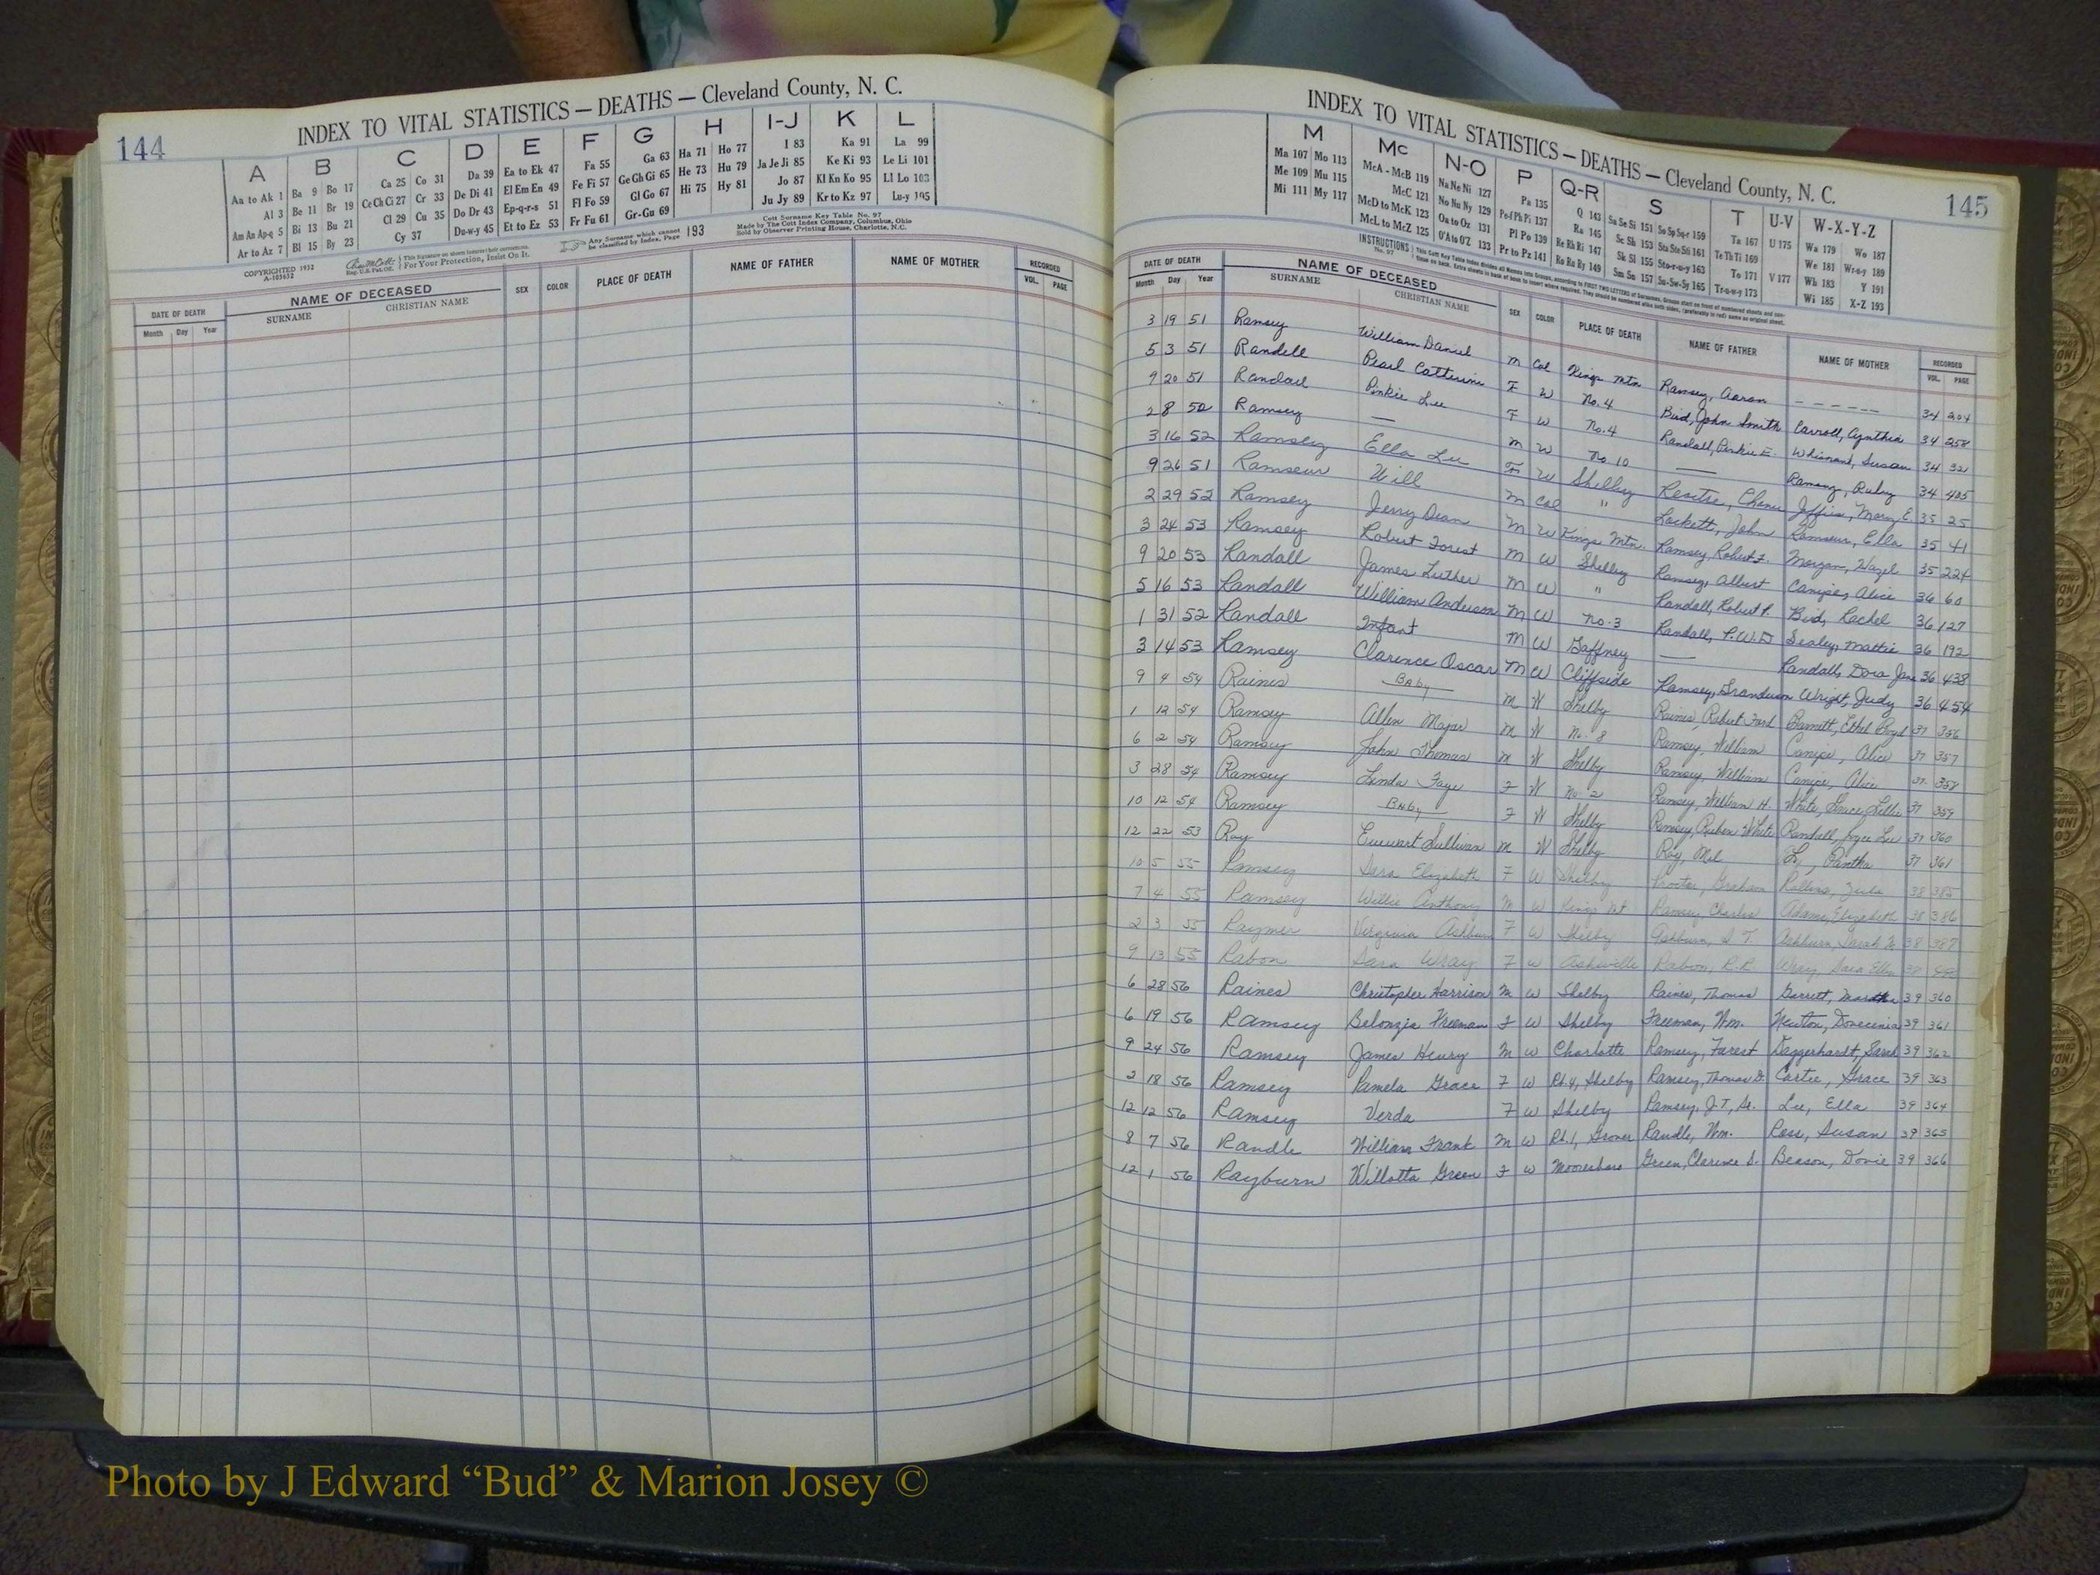 144
INDEX TO VITAL STATISTICS — DEATHS — Cleveland County, N. C.
A B C D E F G H I-J K L
Aa to Ak 1 Ba 9 Bo 17 Ca 25 Co 31 Da 39 Ea to Ek 47 Fa 55 Ga 63 Ha 71 Ho 77 I 83 Ka 91 La 99
Al 3 Be 11 Br 19 Ce Ch Ci 27 Cr 33 De Di 41 El Em En 49 Fe Fi 57 Ge Gh Gi 65 He 73 Hu 79 Ja Je Ji 85 Ke Ki 93 Le Li 101
Am An Ap-q 5 Bi 13 Bu 21 Cl 29 Cu 35 Do Dr 43 Ep-q-r-s 51 Fl Fo 59 Gl Go 67 Hi 75 Hy 81 Jo 87 Kl Kn Ko 95 Ll Lo 103
Ar to Az 7 Bl 15 By 23 Cy 37 Du-w-y 45 Et to Ez 53 Fr Fu 61 Gr-Gu 69 Ju Jy 89 Kr to Kz 97 Lu-y 105
COPYRIGHTED 1932
A-105632
This signature on sheets insures their correctness.
For Your Protection, Insist On It.
Any Surname which cannot be classified by Index, Page 193
Cott Surname Key Table No. 97
Made by The Cott Index Company, Columbus, Ohio
Sold by Observer Printing House, Charlotte, N.C.
DATE OF DEATH NAME OF DECEASED SEX COLOR PLACE OF DEATH NAME OF FATHER NAME OF MOTHER RECORDED
Month Day Year SURNAME CHRISTIAN NAME VOL. PAGE
INDEX TO VITAL STATISTICS — DEATHS — Cleveland County, N. C.
145
M Mc N-O P Q-R S T U-V W-X-Y-Z
Ma 107 Mo 113 McA - McB 119 Na Ne Ni 127 Pa 135 Q 143 Sa Se Si 151 So Sp Sq-r 159 Ta 167 U 175 Wa 179 Wo 187
Me 109 Mu 115 McC 121 No Nu Ny 129 Pe-f Ph Pi 137 Ra 145 Sc Sh 153 Sta Ste Sti 161 Te Th Ti 169 We 181 Wr-u-y 189
Mi 111 My 117 McD to McK 123 Oa to Oz 131 Pl Po 139 Re Rh Ri 147 Sk Sl 155 Sto-r-u-y 163 To 171 V 177 Wh 183 Y 191
McL to McZ 125 O'A to O'Z 133 Pr to Pz 141 Ro Ru Ry 149 Sm Sn 157 Su-Sw-Sy 165 Tr-u-w-y 173 Wi 185 X-Z 193
INSTRUCTIONS
No. 97
DATE OF DEATH NAME OF DECEASED SEX COLOR PLACE OF DEATH NAME OF FATHER NAME OF MOTHER RECORDED
Month Day Year SURNAME CHRISTIAN NAME VOL. PAGE
3 19 51 Ramsey William Daniel M Col Kings Mtn Ramsey, Aaron – – – – – – 34 204
5 3 51 Randell Pearl Catherine F W No. 4 Bird, John Smith Carroll, Cynthia 34 258
9 20 51 Randall Pinkie Lee F W No. 4 Randall, Pinkie E. Whisnant, Susan 34 321
2 8 52 Ramsey — M W No 10 — Ramsey, Ruby 34 485
3 16 52 Ramsey Ella Lee F W Shelby Mary E. 35 25
9 26 51 Ramseur Will M Col " Lockett, John Ramseur, Ella 35 41
2 29 52 Ramsey Jerry Dean M W Kings Mtn. Ramsey, Robert F. Morgan, Hazel 35 224
3 24 53 Ramsey Robert Forest M W Shelby Ramsey, Albert Canipe, Alice 36 60
9 20 53 Randall James Luther M W " Randall, Robert P. Bird, Rachel 36 127
5 16 53 Randall William Anderson M W No. 3 Randall, P.W.D Sealey, Mattie 36 192
1 31 52 Randall Infant M W Gaffney — Randall, Dora Jane 36 438
3 14 53 Ramsey Clarence Oscar M W Cliffside Ramsey, Wright, Judy 36 454
9 4 54 Raines Baby M W Shelby Raines, Robert Ford Barnett, Ethel Boyd 37 356
1 12 54 Ramsey Allen Major M W No. 8 Ramsey, William Canipe, Alice 37 357
6 2 54 Ramsey John Thomas M W Shelby Ramsey, William Canipe, Alice 37 358
3 28 54 Ramsey Linda Faye F W No 2 Ramsey, William H. White, Grace Lillie 37 359
10 12 54 Ramsey Baby F W Shelby Ramsey, Ruben White Randall, Joyce Lee 37 360
12 22 53 Ray Sullivan M W Shelby Ray, Mel 37 361
10 5 55 Ramsey Sara Elizabeth F W Shelby Proctor, Graham Rollins, 38 385
7 4 55 Ramsey Willie Anthony M W Kings Mt Ramsey, Charles Adams, Elizabeth 38 386
2 3 55 Raymer Virginia Ashburn F W Shelby Ashburn, S. T. Ashburn, Sarah 38 387
9 13 55 Rabon Sara Wray F W Asheville Rabon, R.R. Wray, Sara Ellen 38
6 28 56 Raines Christopher Harrison M W Shelby Raines, Thomas Garrett, Martha 39 360
6 19 56 Ramsey Belonzia Freeman F W Shelby Freeman, Wm. Newton, 39 361
9 24 56 Ramsey James Henry M W Charlotte Ramsey, Forest Daggerhardt, Sarah 39 362
2 18 56 Ramsey Pamela Grace F W Rt. 4, Shelby Ramsey, Thomas D. Carter, Grace 39 363
12 12 56 Ramsey Verda F W Shelby Ramsey, J.T., Sr. Lee, Ella 39 364
8 7 56 Randle William Frank M W Rt. 1, Grover Randle, Wm. Ross, Susan 39 365
12 1 56 Rayburn Willotta Green F W Mooresboro Green, Clarence S. Beason, Dovie 39 366
Photo by J Edward “Bud” & Marion Josey ©